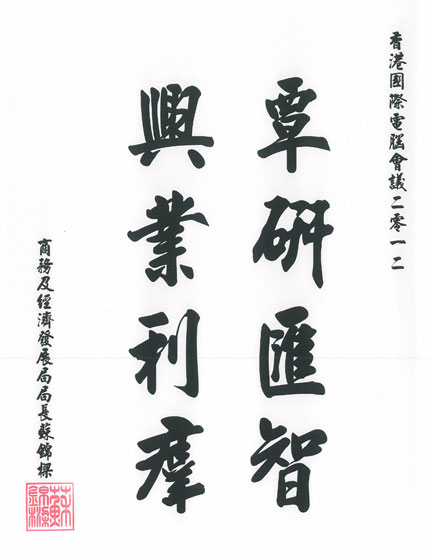 香港國際電腦會議二零一二
覃研匯智
興業利羣
商務及經濟發展局局長蘇錦樑
蘇錦樑